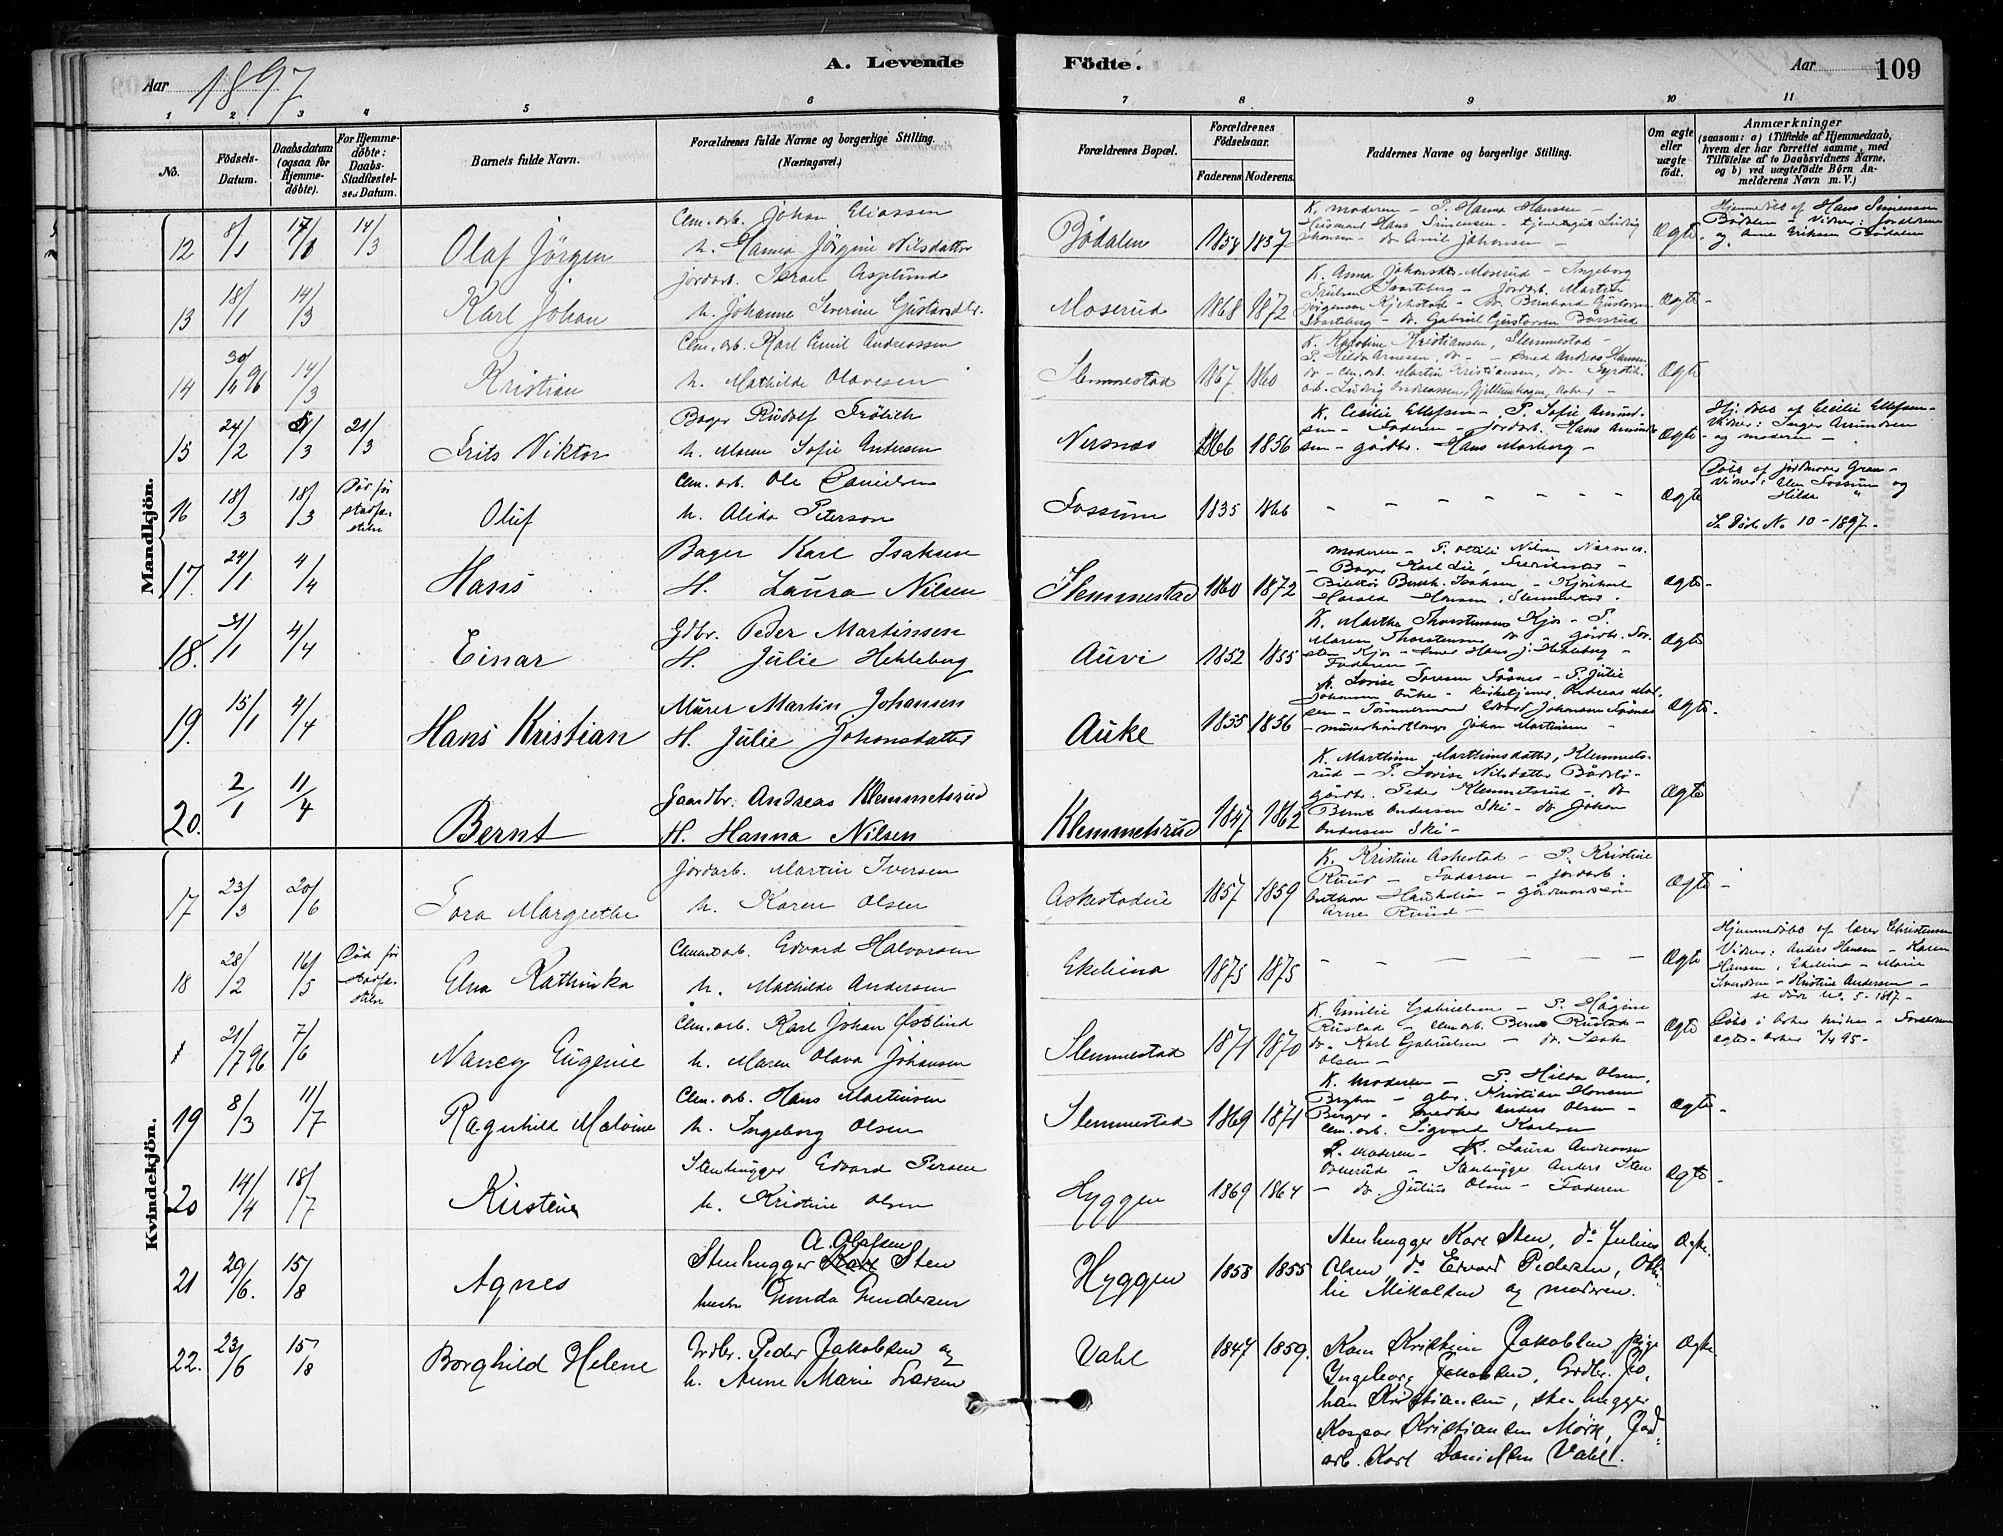 Aar 1897
A. Levende Födte.
Aar 109
1 2 3 4 5 6 7 8 9 10 11
No.
Födsels-
Datum.
Daabsdatum
(ogsaa for
Hjemme-
döbte).
For Hjemme-
döbte:
Daabs-
Stadfæstel-
ses Datum.
Barnets fulde Navn.
Forældrenes fulde Navne og borgerlige Stilling
(Næringsvei.)
Forældrenes Bopæl.
Forældrenes
Födselsaar.
Faderens Moderens.
Faddernes Navne og borgerlige Stilling.
Om ægte
eller
uægte
født.
Anmærkninger
(saasom: a) i Tilfælde af Hjemmedaab,
hvem der har forrettet samme, med
Tilföielse af to Daabsvidners Navne,
og b) ved uægtefödte Börn An-
melderens Navn m. V.)
Mandkjön.
12 8/1 14/3 Olaf Jörgen
Cem. arb. Johan Eliassen
h. Hanna Jörgine Nilsdatter
Bödalen 1854 1857
K. moderen – P. Hanna Hansen –
Husmand Hans Simensen – Ludvig
Johansen – do Emil Johansen –
Ægte
Hjemmedöbt af Hans Simensen
Bödalen – Vidner: Forældrene
og Anne Eriksen Bödalen
13 18/1 14/3 Karl Johan
Jordarb. Israel Asplund
h. Johanne Severine Gustavsdtr.
Moserud 1868 1872
K. Anna Johansdtr. Moserud – Ingeborg
Jordarb. Martin
Jörgensen – do Bernhard Gustavsen
– do. Gabriel Gustavsen
Ægte –
14 30/11 96 14/3 Kristian
Cem. arb. Karl Emil Andreassen
h. Mathilde Olavesen
Slemmestad 1867 1860
K. Karoline Kristiansen, Slemmestad –
P. Hilda Arnesen, do – Smed Andreas Hansen
do – Cem. arb. Martin Kristiansen, do –
arb. Ludvig Andreassen, Asker –
Ægte
15 24/2 5/3 21/3 Frits Viktor
Bager Rudolf Frölich
h. Maren Sofie Andersen
Nersnæs 1866 1856
K. Cecilie Ellefsen – P. Sofie Amund-
sen – Faderen – Jordarb. Hans Amund-
sen – gårdbr. Hans Morberg –
Ægte
Hj. döbt af Cecilie Ellefsen –
Vidner: Inger Amundsen
og moderen –
16 18/3 18/3 Död før
stadfæ-
stelse
Oluf
Cem. arb. Ole Danielsen
h. Alida Peterson
Fossum 1835 1866
– – – – – – –
Ægte
Döbt af jordmoder Gran –
Vidner: Elen Fossum og
Hilda "
Se Döde No 10 – 1897 –
17. 24/1 4/4 Hans
Bager Karl Isaksen
H. Laura Nilsen
Slemmestad 1860 1872
Moderen – P. Ottilie Nilsen Nærsnes.
– Bager Karl Lie,
Bernh. Isaksen –
Harald Hansen, Slemmestad.
Ægte –
18. 31/1 4/4 Einar
Gdbr. Peder Martinsen
H. Julie Hekleberg
Auvi 1852 1855
K. Marthe Thorstensen Kjos – P.
Maren Thorstensen do – gårdbr. Tor-
sten Kjos – Hans J. Hekleberg –
Faderen –
Ægte
19. 15/1 4/4 Hans Kristian
Murer Martin Johansen
H. Julie Johansdatter
Auke 1855 1856
K. Lovise Sörensen – P. Julie
Johansen Auke – kirketjener Andreas
sen – Tömmermand Edvard Johansen
– murerhåndlanger Johan Martinsen –
Ægte.
20. 2/1 11/4 Bernt
Gaardbr. Andreas Klemmetsrud
H. Hanna Nilsen
Klemmetsrud 1847 1862
K. Marthine Marthinsdatter, Klemmets-
rud – P. Lovise Nilsdatter
gårdbr. Peder Klemmetsrud – do
Bernt Andersen Ski – do Johan
Andersen Ski –
Ægte
Kvindekjön.
17 23/3 20/6 Tora Margrethe
Jordarb. Martin Iversen
h. Karen Olsen
Askestadeie 1857 1859
K. Kristine Askestad – P. Kristine
Ruud – Faderen – jordarb.
Anthon – gårdmandssön
Arne Ruud –
Ægte –
18 28/2 16/5 Död før
stadfæ-
stelse
Elna Kathinka
Cement arb. Edvard Halvorsen
h. Mathilde Andersen
Ekelina 1875 1875
– – – – – – –
Ægte
Hjemmedöbt af lærer Christensen
Vidner: Anders Hansen – Karen
Hansen, Ekelina – Marie
– Kristine Andersen –
se döde No. 5 – 1897 –
1 21/7 96 7/6 Nancy Eugenie
Cem. arb. Karl Johan Östlund
h. Maren Olava Johansen
Slemmestad 1871 1870
K. Emilie Gabrielsen – P. Hågine
Rustad – Cem. arb. Bernt Rustad –
do. Karl Gabrielsen – do. Isak
Olsen –
Ægte
Döbt i Asker kirke – Forældrene
ægtev. Asker 95 –
19 8/3 11/7 Ragnhild Malvine
Cem. arb. Hans Martinsen
h. Ingeborg Olsen
Slemmestad 1869 1871
K. Moderen – P. Hilda Olsen,
gbr. Kristian Hansen
Berger – Anders Olsen –
Cem. arb. Sigvard Karlsen
Ægte –
20 14/4 18/7 Kirstine
Stenhugger Edvard Persen
h. Kristine Olsen
Hyggen 1869 1864
Moderen – Laura Andreassen
– Stenhugger Anders Sten
– do Julius Olsen – Faderen
Ægte –
21 20/6. 15/8 Agnes
A. Olafsen
Stenhugger Karl Sten
hustru Gunda Gundersen
Hyggen 1853 1855
Stenhugger Karl Sten, do Julius
Olsen, do Edvard Pedersen, Otti-
lie Mikalsen og moderen.
Ægte.
22. 23/6 15/8 Borghild Helene
Grdbr. Peder Jakobsen og
h. Anne Marie Larsen
Vahl 1847 1859.
Kone Kristine Jakobsen pige
Ingeborg Jakobsen, Grdbr. Jo-
han Kristiansen, stenhugger
Kaspar Kristiansen Mörk, Jord-
arb. Karl Danielsen Vahl.
Ægte.